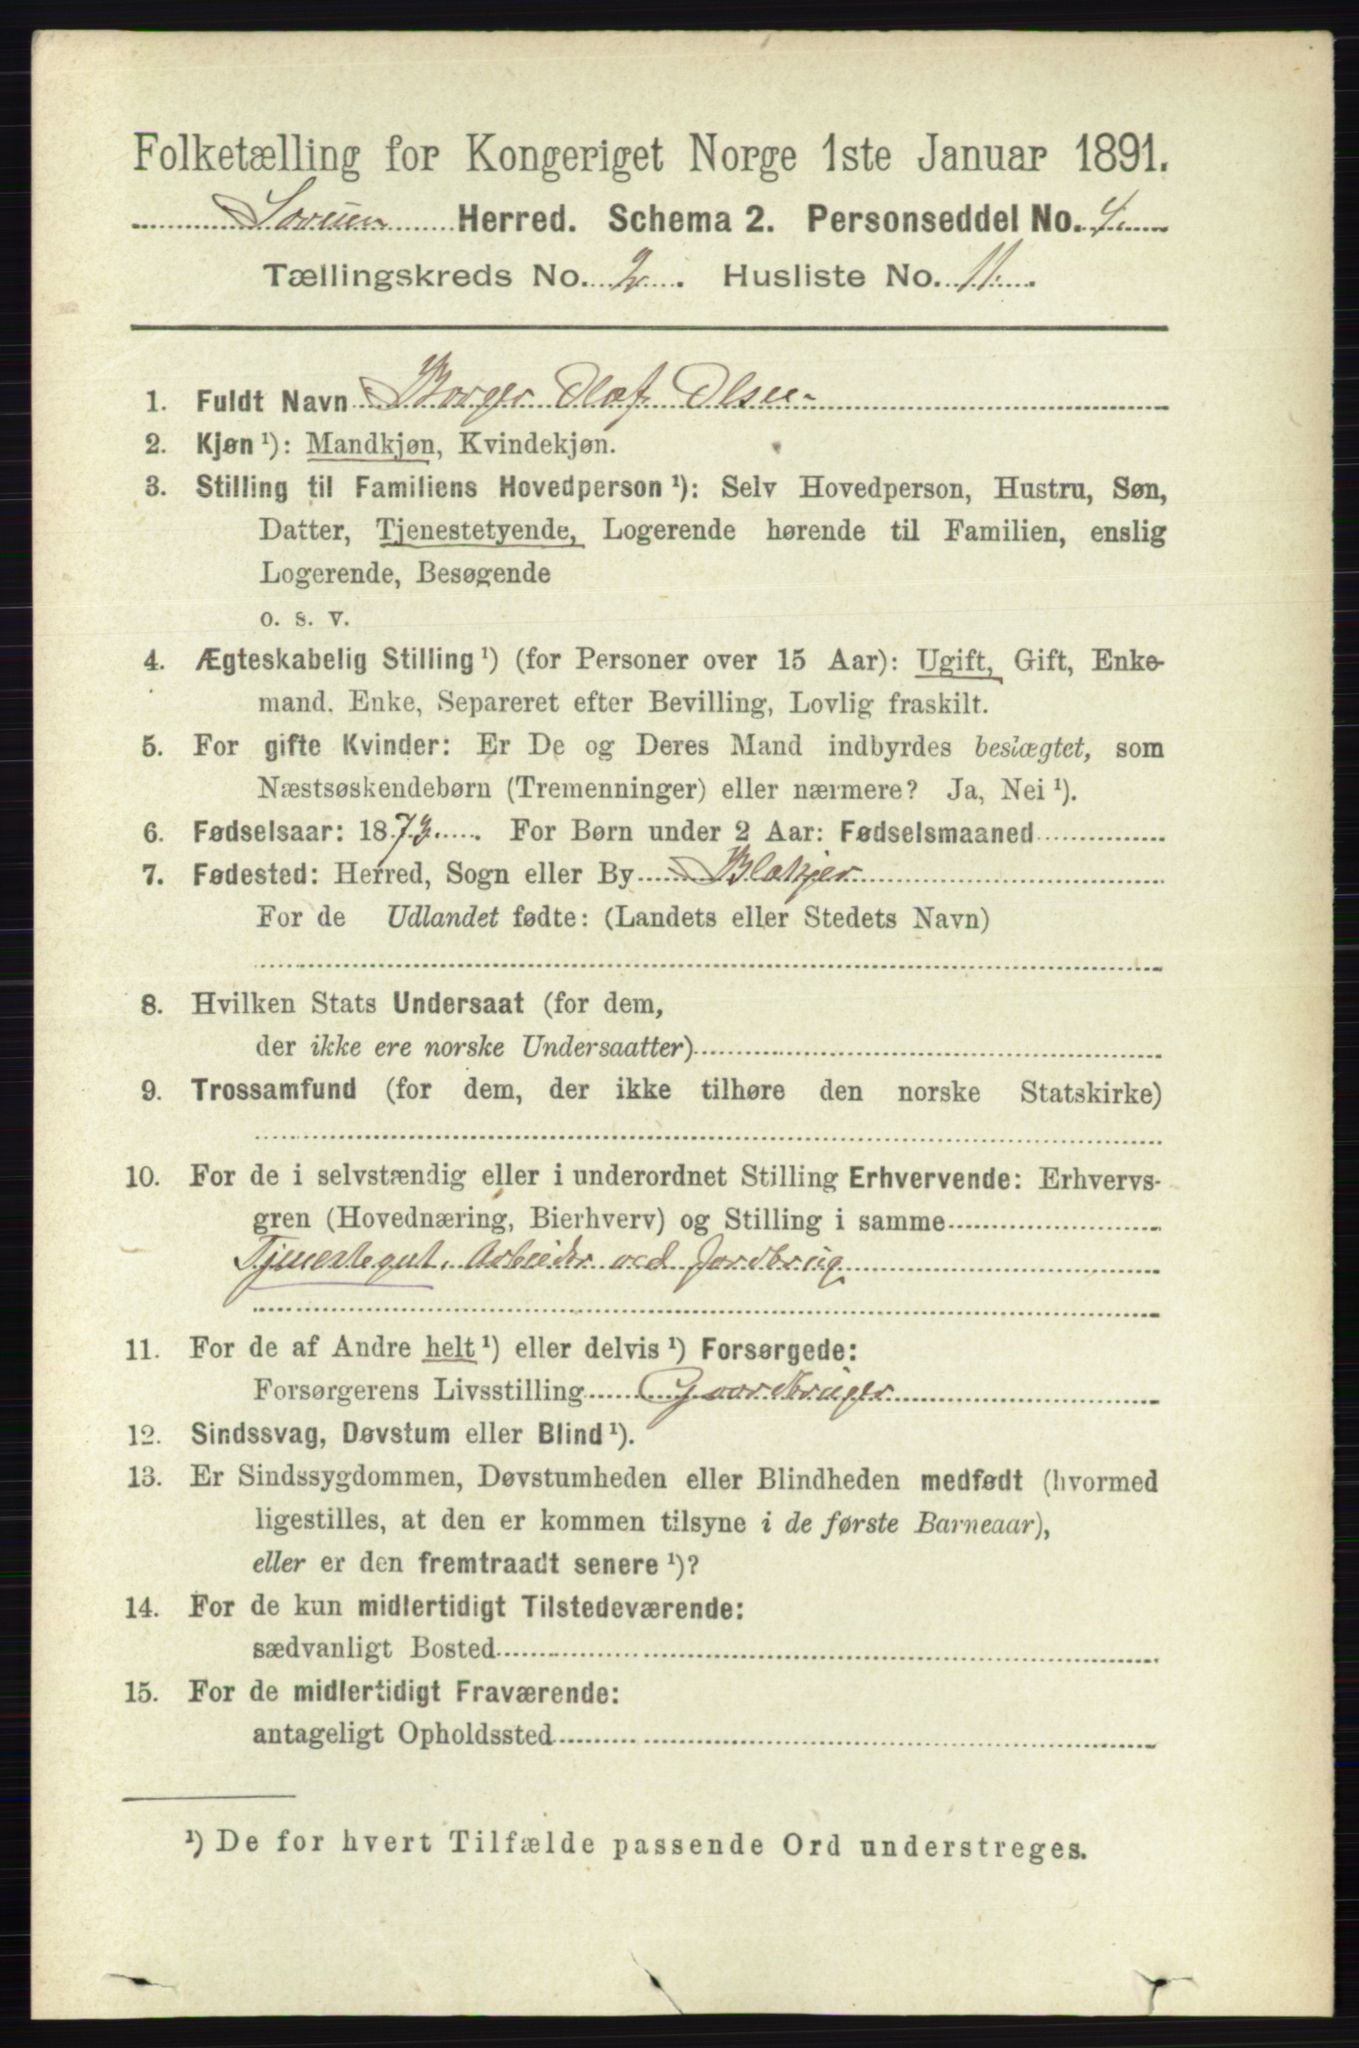 Folketælling for Kongeriget Norge 1ste Januar 1891.
Sørum Herred. Schema 2. Personseddel No. 4.
Tællingskreds No. 2. Husliste No. 11.
1. Fuldt Navn Borger Olaf Olsen
2. Kjøn ¹): Mandkjøn, Kvindekjøn.
3. Stilling til Familiens Hovedperson ¹): Selv Hovedperson, Hustru, Søn,
Datter, Tjenestetyende, Logerende hørende til Familien, enslig
Logerende, Besøgende
o. s. v.
4. Ægteskabelig Stilling ¹) (for Personer over 15 Aar): Ugift, Gift, Enke-
mand. Enke, Separeret efter Bevilling, Lovlig fraskilt.
5. For gifte Kvinder: Er De og Deres Mand indbyrdes beslægtet, som
Næstsøskendebørn (Tremenninger) eller nærmere? Ja, Nei ¹).
6. Fødselsaar: 1873. For Børn under 2 Aar: Fødselsmaaned
7. Fødested: Herred, Sogn eller By Blakjer
For de Udlandet fødte: (Landets eller Stedets Navn)
8. Hvilken Stats Undersaat (for dem,
der ikke ere norske Undersaatter)
9. Trossamfund (for dem, der ikke tilhøre den norske Statskirke)
10. For de i selvstændig eller i underordnet Stilling Erhvervende: Erhvervs-
gren (Hovednæring, Bierhverv) og Stilling i samme
Tjenestegut. Arbeider ved Jordbrug
11. For de af Andre helt ¹) eller delvis ¹) Forsørgede:
Forsørgerens Livsstilling Gaardbruger
12. Sindssvag, Døvstum eller Blind ¹).
13. Er Sindssygdommen, Døvstumheden eller Blindheden medfødt (hvormed
ligestilles, at den er kommen tilsyne i de første Barneaar),
eller er den fremtraadt senere ¹)?
14. For de kun midlertidigt Tilstedeværende:
sædvanligt Bosted
15. For de midlertidigt Fraværende:
antageligt Opholdssted
¹) De for hvert Tilfælde passende Ord understreges.